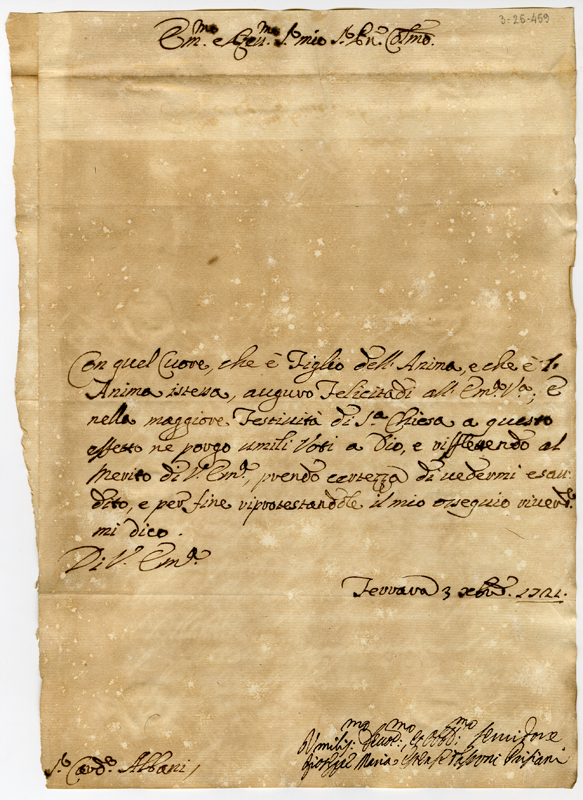 3-26-459
Em.mo e Rev.mo S.r mio S.r Pn. Col.mo.
Con quel Cuore, che è Figlio dell'Anima, e che è l'
Anima istessa, auguro Felicitadi all'Em.a V.a; E
nella maggiore Festività di S.a Chiesa a questo
effetto ne porgo umili Voti a Dio, e riflettendo al
Merito di V.a Em.a, prendo certezza di vedermi esau
dito, e per fine riprotestandole il mio ossequio riverte.
mi dico.
Di V.a Em.a
Ferrara 3 Xbre. 1721.
Umilis.mo Devo.mo, ed Obb.mo Servidore
Gioseffe Maria Estense Tassoni Prisiani
S.r Card. Albani